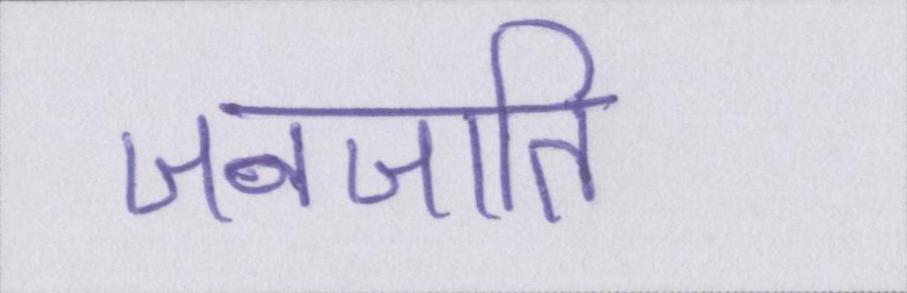 जनजाति